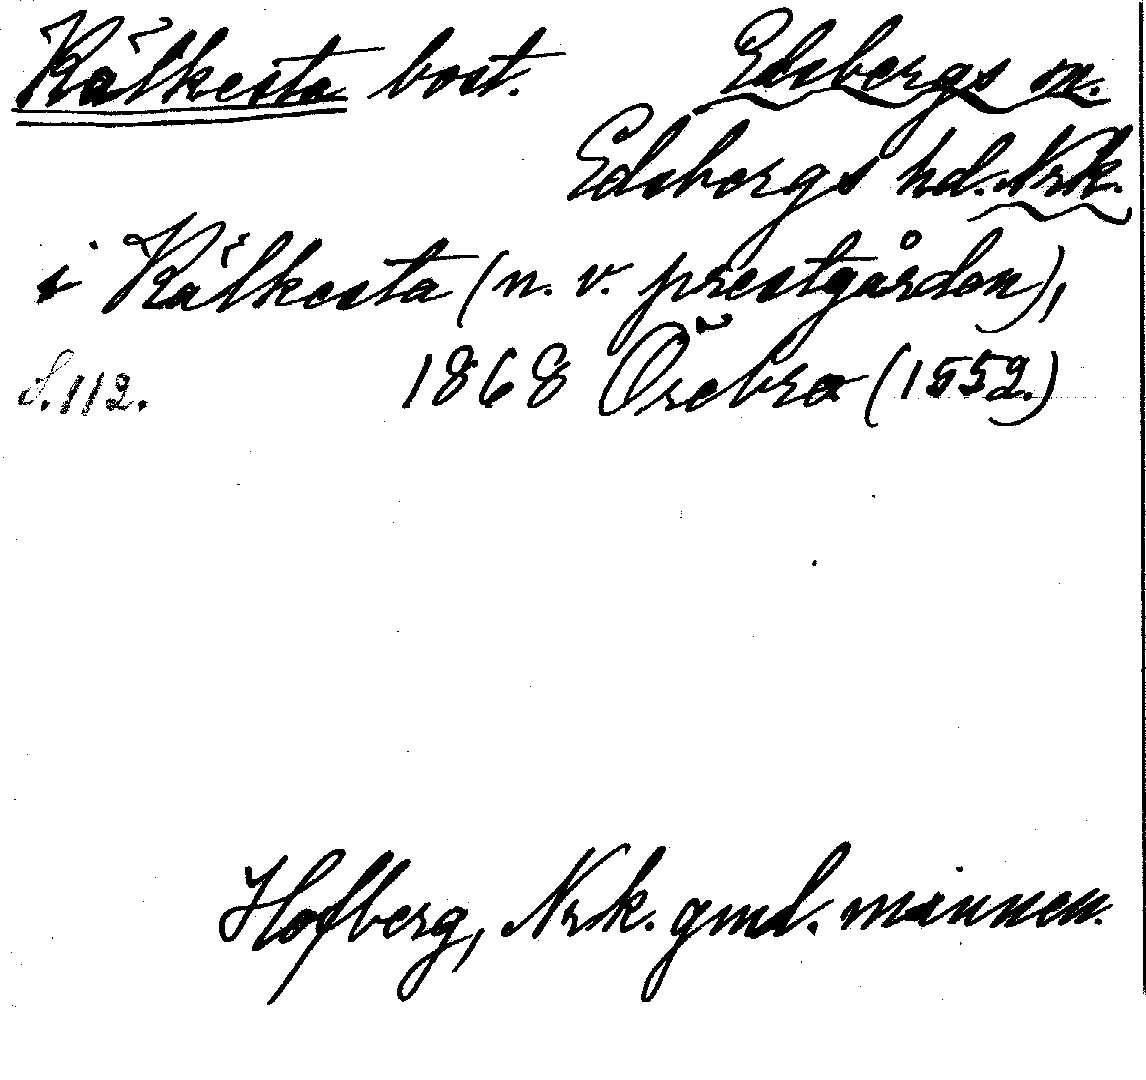 Kälkesta bost. Edsbergs sn.
Edsbergs hd. Nrk.
i Kälkesta (n. v. prestgården),
S. 112. 1868 Örebro (1552.)
Hofberg, Nrk. gmd. minnen.